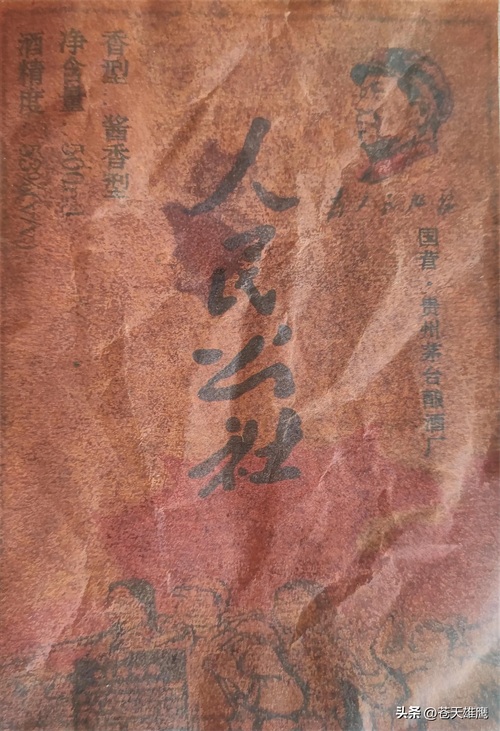 为人民服务
国营·贵州茅台酿酒厂
人民公社
香型:酱香型
净含量:500ml
酒精度:53%V/V
头条 @苍天雄鹰